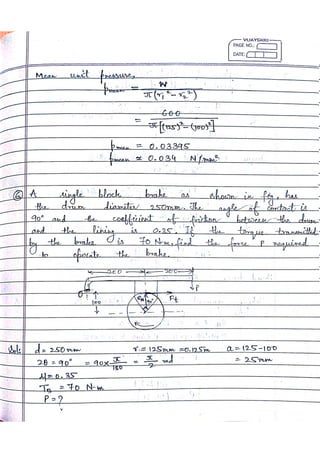 VIJAYSHRI
PAGE NO.:
DATE:
Mean unit pressure,
pmean = W / π(r₁² − r₂²)
= 600 / π[(125)² − (100)²]
pmean = 0.03395
pmean ≈ 0.034 N/mm²
⑥ A single block brake as shown in fig. has
the drum diameter 250mm. The angle of contact is
90° and the coefficient of friction between the drum
and the lining is 0.35. If the torque transmitted
by the brake is 70 N-m, find the force P required
to operate the brake.
200 200
O P
100 Ft
Soln: d = 250 mm r = 125mm = 0.125m a = 125-100
2θ = 90° = 90 × π/180 = π/2 rad = 25mm
μ = 0.35
TB = 70 N-m
P = ?